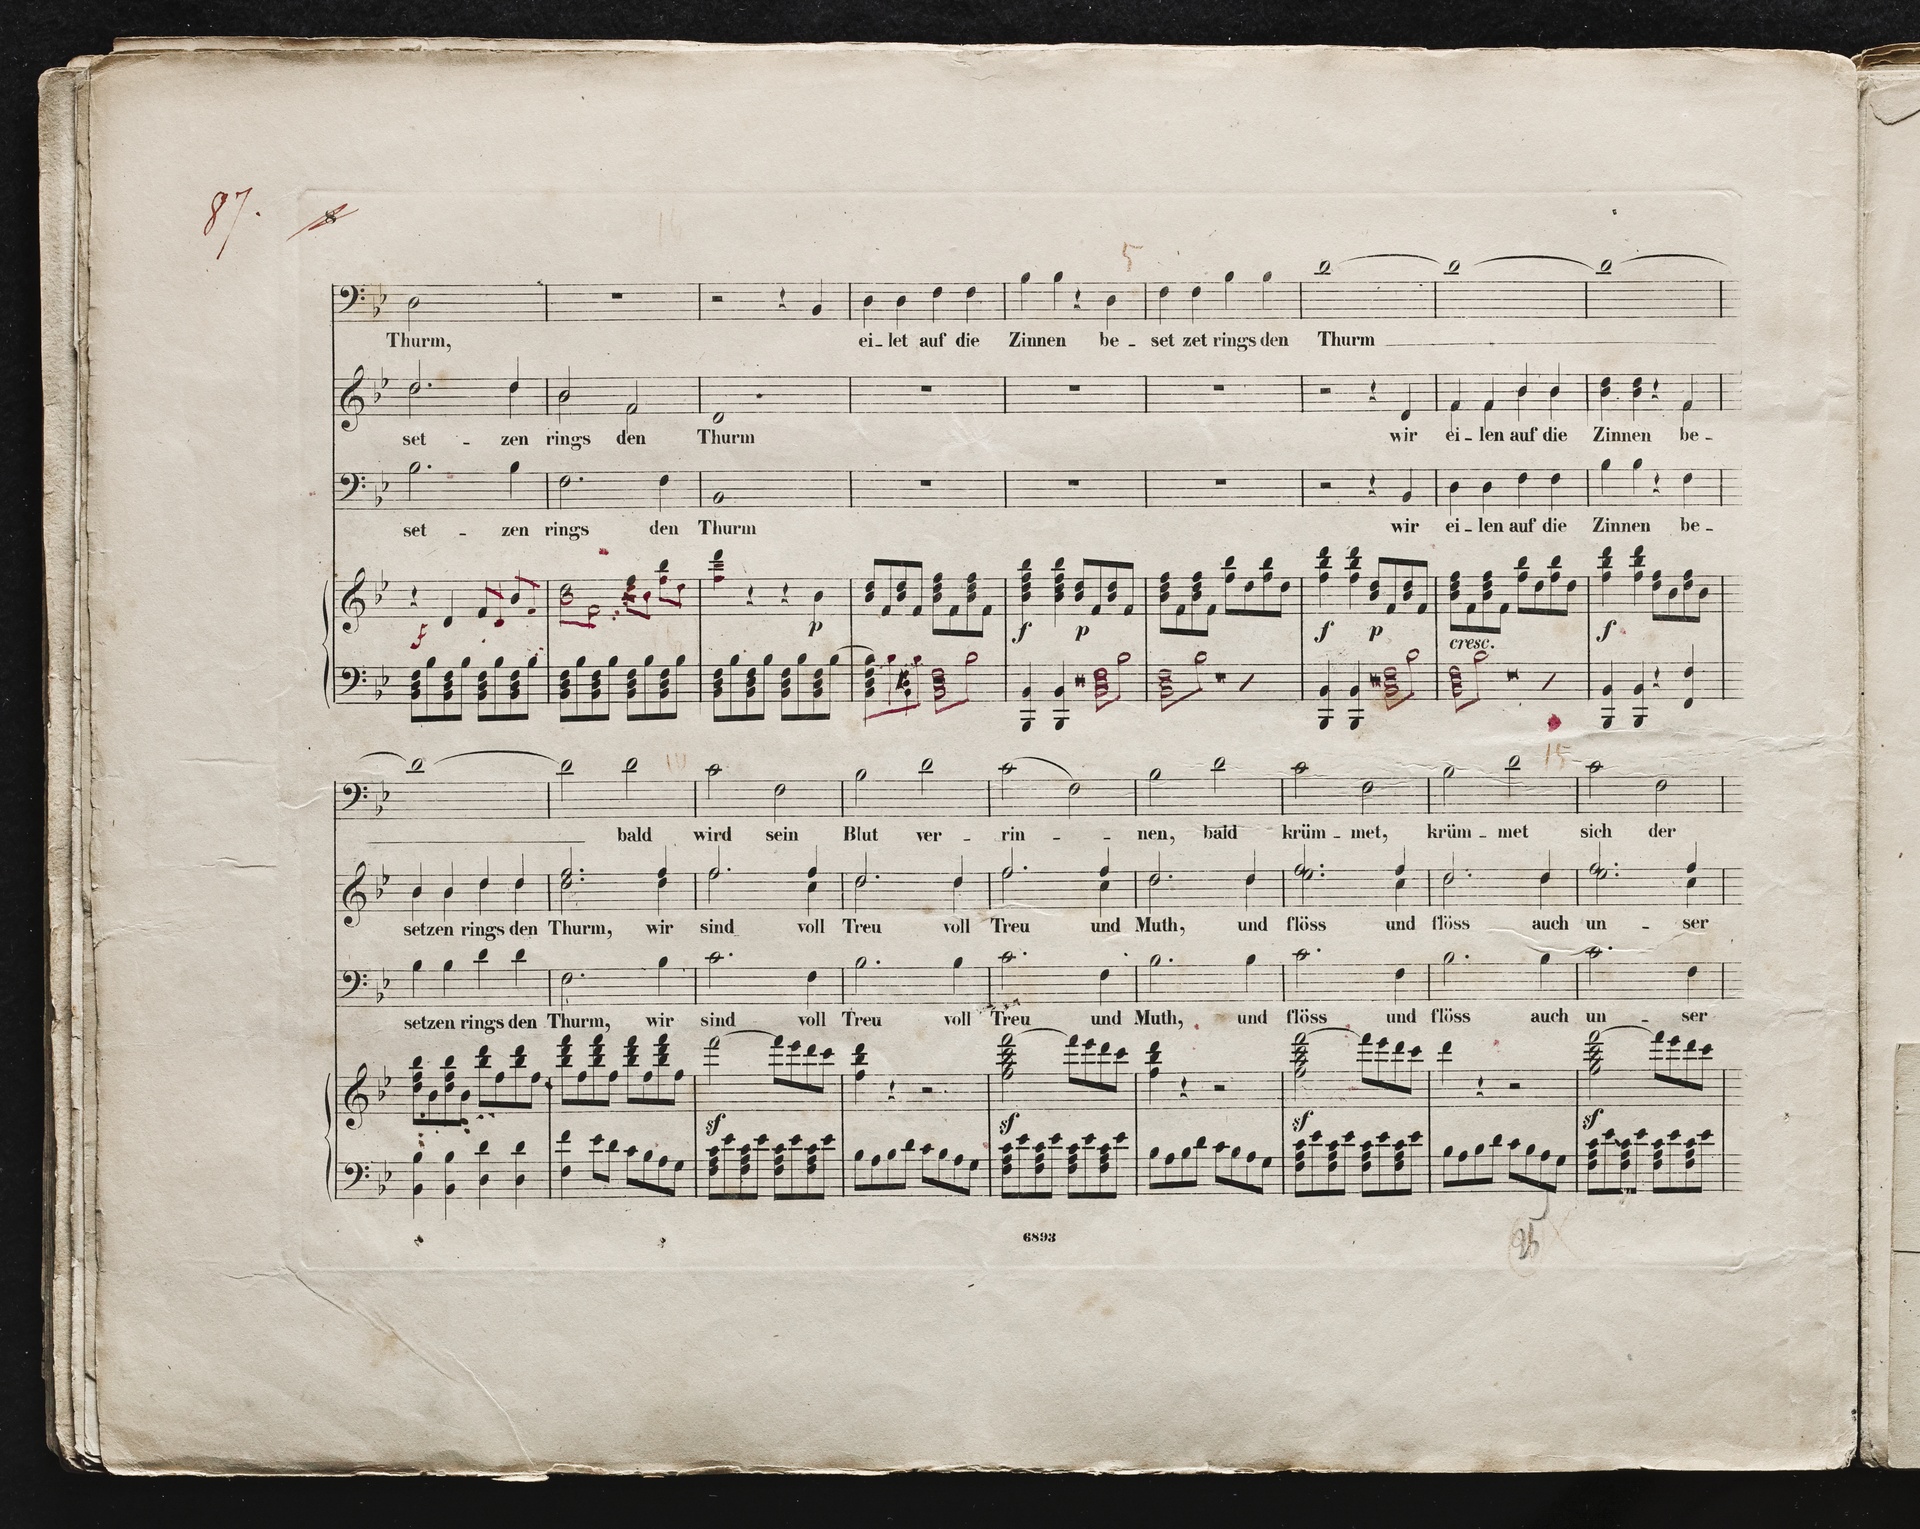 87.
8
16
5
Thurm, ei_let auf die Zinnen be_set zet rings den Thurm
set _ zen rings den Thurm wir ei_len auf die Zinnen be_
set _ zen rings den Thurm wir ei_len auf die Zinnen be_
f p f p f p cresc. f
10
15
bald wird sein Blut ver_rin_ _nen, bald krüm_met, krüm_met sich der
setzen rings den Thurm, wir sind voll Treu voll Treu und Muth, und flöss und flöss auch un _ ser
setzen rings den Thurm, wir sind voll Treu voll Treu und Muth, und flöss und flöss auch un _ ser
sf sf sf sf
6893